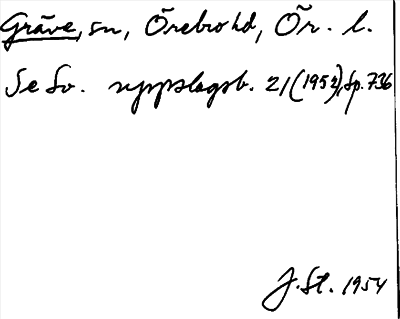 Gräve, sn, Örebro hd, Ör. l.
Se Sv. uppslagsb. 21 (1952), sp. 736
J. St. 1954